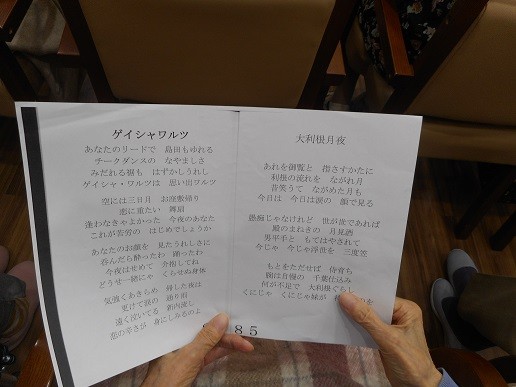 ゲイシャワルツ
あなたのリードで 島田もゆれる
チークダンスの なやましさ
みだれる裾も はずかしうれし
ゲイシャ・ワルツは 思い出ワルツ
空には三日月 お座敷帰り
恋に重たい 舞扇
逢わなきゃよかった 今夜のあなた
これが苦労の はじめでしょうか
あなたのお顔を 見たうれしさに
呑んだら酔ったわ 踊ったわ
今夜はせめて 介抱してね
どうせ一緒にゃ くらせぬ身体
気強くあきらめ 帰した夜は
更けて涙の 通り雨
遠く泣いてる 新内流し
恋の辛さが 身にしみるのよ
大利根月夜
あれを御覧と 指さすかたに
利根の流れを ながれ月
昔笑うて ながめた月も
今日は 今日は涙の 顔で見る
愚痴じゃないけれど 世が世であれば
殿のまねきの 月見酒
男平手と もてはやされて
今じゃ 今じゃ浮世を 三度笠
もとをただせば 侍育ち
腕は自慢の 千葉仕込み
何が不足で 大利根ぐらし
くにじゃ くにじゃ妹が を
85